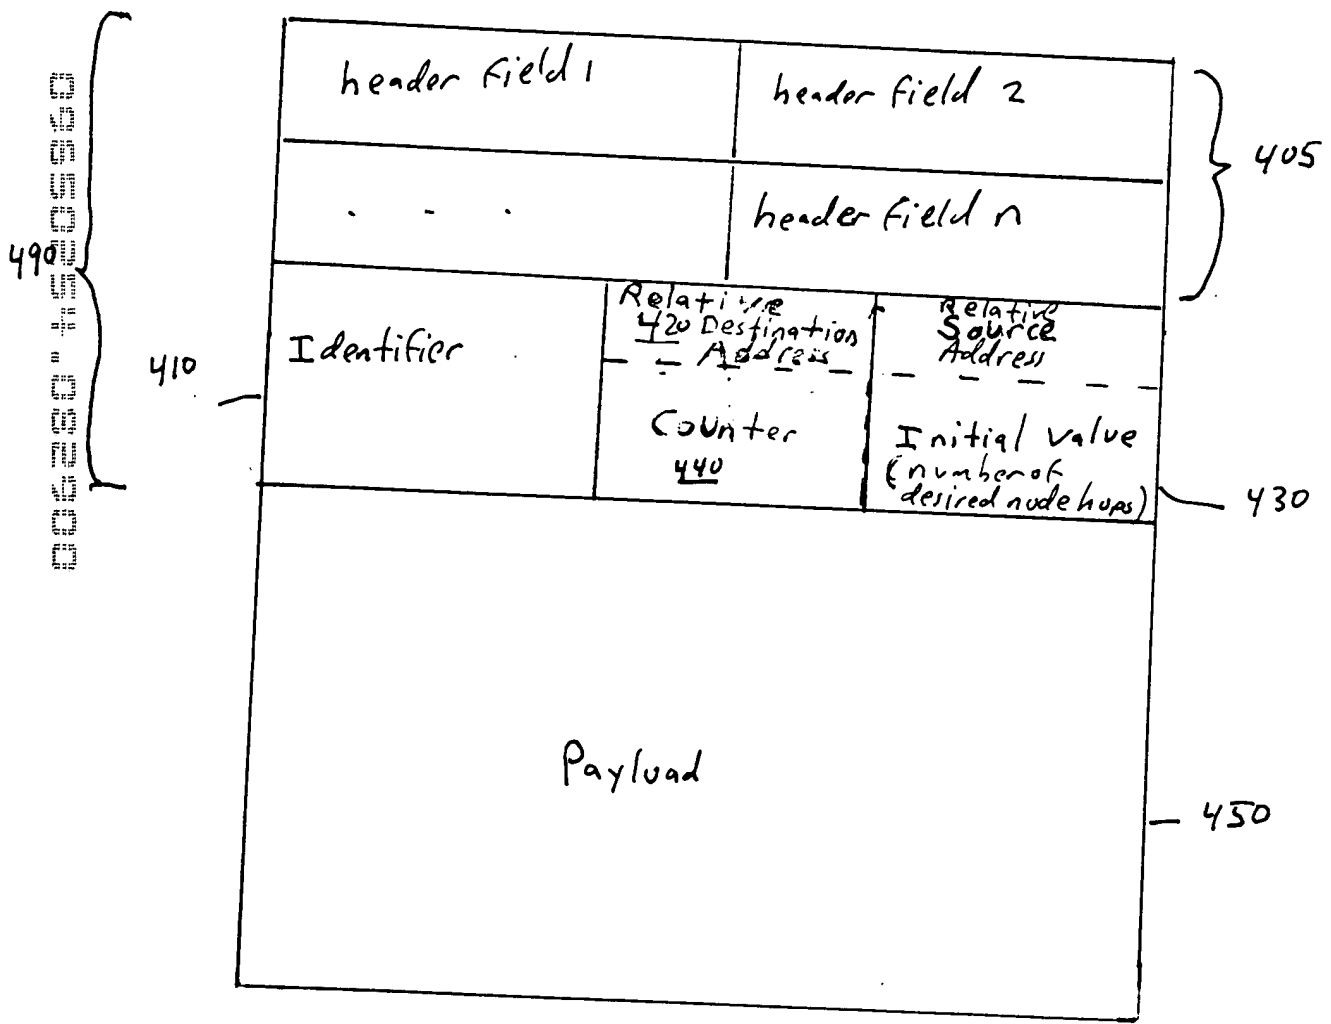 header field 1
header field 2
405
. . .
header field n
490
Relative
420 Destination
Address
Relative
Source
Address
Identifier
410
Counter
440
Initial value
(number of
desired node hops)
430
Payload
450